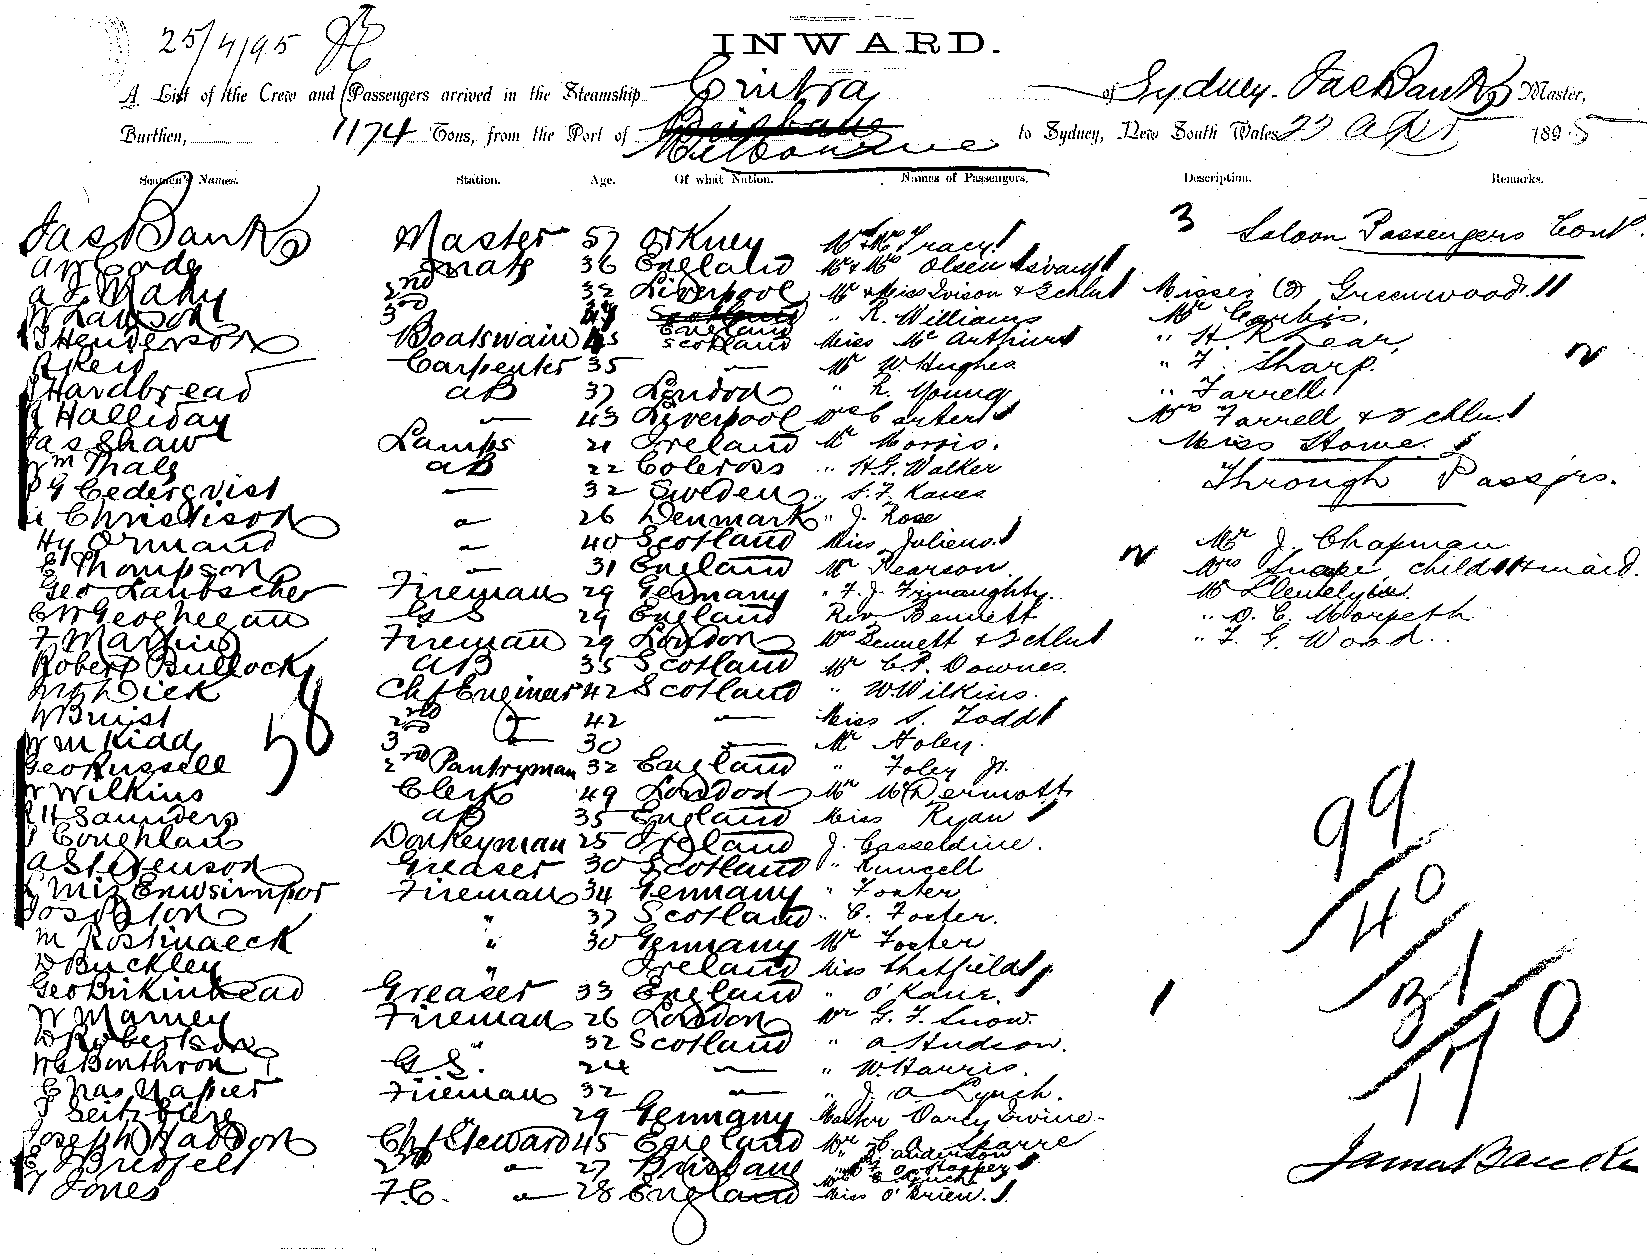 25/4/95
INWARD.
A List of the Crew and Passengers arrived in the Steamship Cintra of Sydney. Jas Banks Master,
Burthen, 1174 Tons, from the Port of Brisbane Melbourne to Sydney, New South Wales 22 Apr 1895
Seamen's Names. Station. Age. Of what Nation. Names of Passengers. Description. Remarks.
3 Saloon Passengers Cont.
Jas Banks Master 57 Orkney Mr & Mrs Tracy
Mate 36 England Mr & Mrs Olsen & servant
2nd 32 Liverpool Mr & Miss Ivison & 3 chln Misses (2) Greenwood
W Lawson 3rd England " R. Williams Mr Corbis.
Henderson Boatswain 45 Scotland Miss McArthur " H. R. Lear,
Carpenter 35 " Mr W Hughes " F. Sharp.
Hardbread AB 37 London " R. Young " Farrell
Halliday " 43 Liverpool Mrs Carter Mrs Farrell & 2 chln
Jas Shaw Lamps 21 Ireland Mr Morris. Miss Stowe
Wm Thals AB 22 " H. G. Walker Through Passgrs.
P G Cederqvist " 32 Sweden " S. F. Kaves
Christison " 26 Denmark " J. Rose
Hy Ormand " 40 Scotland Miss Juliens Mr J. Chapman
E Thompson " 31 England Mr Pearson Mrs Snape child & maid.
Geo Laubscher Fireman 29 Germany " F. J. Mr Llewelyn
C W Geoghegan G S 29 England Rev Bennett " D. C. Morpeth
F Martins Fireman 29 London Mrs Bennett & 3 chln " F. G. Wood.
Robert Bullock AB 35 Scotland Mr C. P. Downes
Dick Chf Engineer 42 Scotland " W. Wilkins.
W Buist 2nd " 42 " Miss S. Todd
58
W M Kidd 3rd " 30 " Mr Foley.
Geo Russell 2nd Pantryman 32 England " Foley Jr.
W Wilkins Clerk 49 London Mr McDermott
R H Saunders AB 35 England Miss Ryan
J Coughlan Donkeyman 25 Ireland J. Casseldine.
A Stevenson Greaser 30 Scotland " Runcell
Fireman 34 Germany " Foster
" 37 Scotland " C. Foster.
M Rostinaeck " 30 Germany Mr Foster
D Buckley " Ireland Miss Shatfield
Geo Birkinhead Greaser 33 England " O'Kane.
W Marney Fireman 26 London Mr G. F. Snow.
D Robertson " 32 Scotland " A. Hudson.
W G Bonthron G. S. 24 " " W. Harris.
Chas Napier Fireman 32 " " J. A. Lynch.
29 Germany Master Darly Irvine
Joseph Haddon Chf Steward 45 England Mr C. Skarre
J Bredfelt 2nd " 27 Brisbane
Jones F.C. " 28 England Miss O'Brien.
99
40
31
170
James Banks